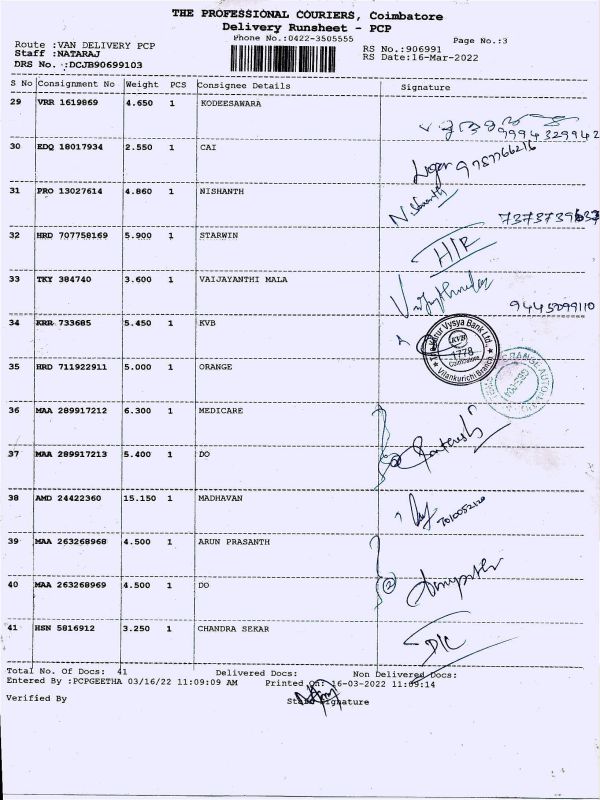 THE PROFESSIONAL COURIERS, Coimbatore
Delivery Runsheet - PCP
Phone No.:0422-3505555
Page No.:3
Route :VAN DELIVERY PCP
RS No.:906991
Staff :NATARAJ
RS Date:16-Mar-2022
DRS No. :DCJB90699103
S No Consignment No Weight PCS Consignee Details Signature
29 VRR 1619869 4.650 1 KODEESAWARA
9994329942
30 EDQ 18017934 2.550 1 CAI
9787766216
31 PRO 13027614 4.860 1 NISHANTH
Nishanth
32 HRD 707758169 5.900 1 STARWIN
H/R
33 TKY 384740 3.600 1 VAIJAYANTHI MALA
9445099110
34 KRR 733685 5.450 1 KVB
The Karur Vysya Bank Ltd.
KVB
1778
Coimbatore
Vilankurichi Branch
35 HRD 711922911 5.000 1 ORANGE
36 MAA 289917212 6.300 1 MEDICARE
37 MAA 289917213 5.400 1 DO
38 AMD 24422360 15.150 1 MADHAVAN
7010052120
39 MAA 263268968 4.500 1 ARUN PRASANTH
40 MAA 263268969 4.500 1 DO
2
41 HSN 5816912 3.250 1 CHANDRA SEKAR
D/C
Total No. Of Docs: 41 Delivered Docs: Non Delivered Docs:
Entered By :PCPGEETHA 03/16/22 11:09:09 AM Printed On: 16-03-2022 11:09:14
Verified By Staff Signature